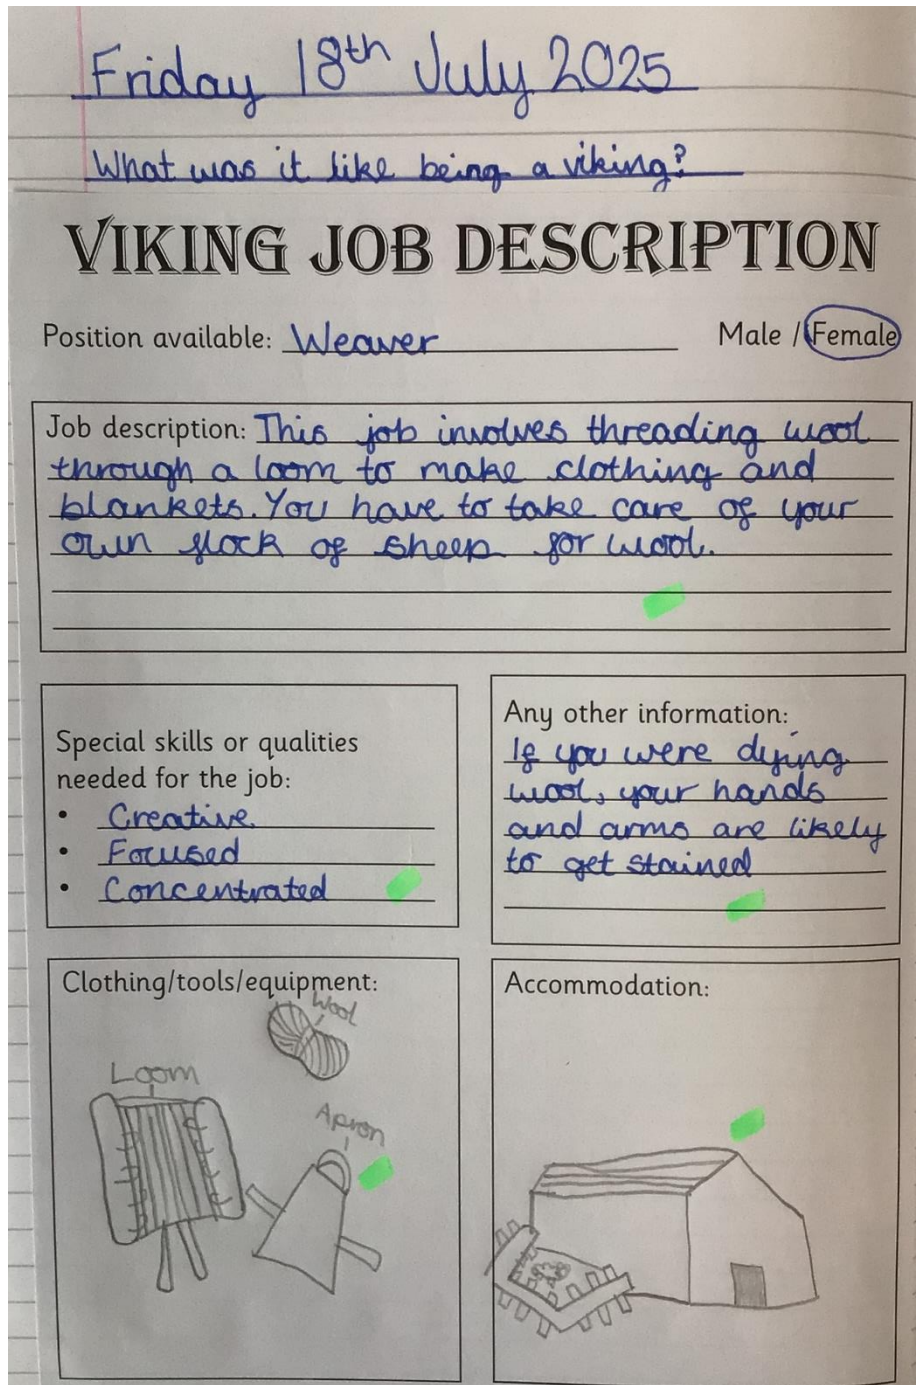 Friday 18th July 2025
What was it like being a viking?
VIKING JOB DESCRIPTION
Position available: Weaver Male / Female
Job description: This job involves threading wool
through a loom to make clothing and
blankets. You have to take care of your
own flock of sheep for wool.
Special skills or qualities
needed for the job:
• Creative
• Focused
• Concentrated
Any other information:
If you were dying
wool, your hands
and arms are likely
to get stained
Clothing/tools/equipment:
Wool
Loom
Apron
Accommodation: